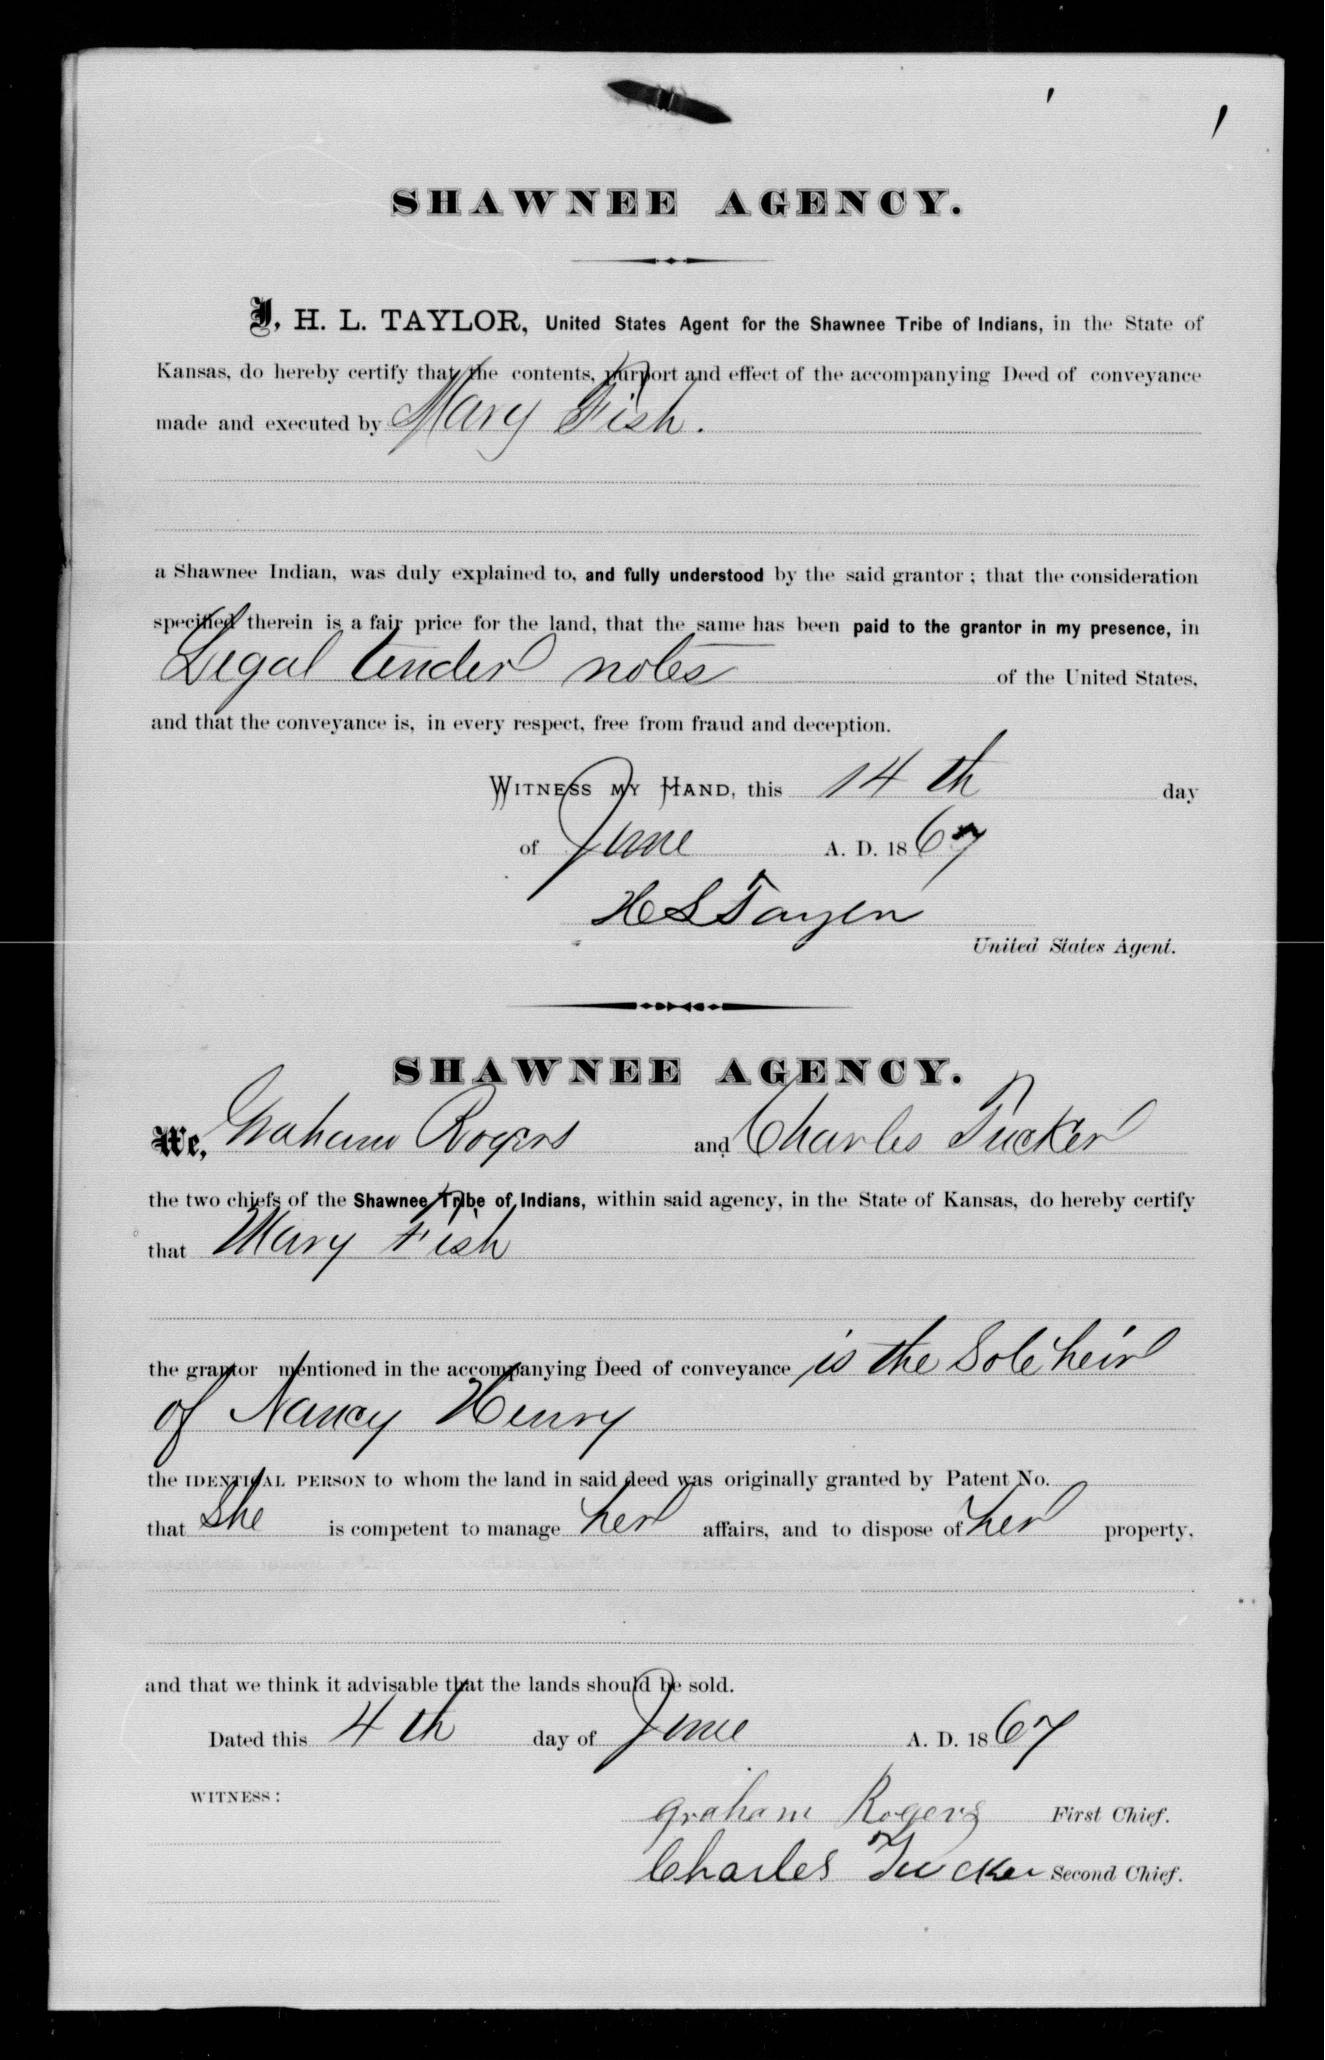 SHAWNEE AGENCY.
I, H. L. TAYLOR, United States Agent for the Shawnee Tribe of Indians, in the State of
Kansas, do hereby certify that the contents, purport and effect of the accompanying Deed of conveyance
made and executed by Mary Fish.
a Shawnee Indian, was duly explained to, and fully understood by the said grantor; that the consideration
specified therein is a fair price for the land, that the same has been paid to the grantor in my presence, in
Legal tender notes of the United States,
and that the conveyance is, in every respect, free from fraud and deception.
WITNESS MY HAND, this 14 th day
of June A. D. 1867
H L Taylor
United States Agent.
SHAWNEE AGENCY.
We, Graham Rogers and Charles Tucker
the two chiefs of the Shawnee Tribe of Indians, within said agency, in the State of Kansas, do hereby certify
that Mary Fish
the grantor mentioned in the accompanying Deed of conveyance is the Sole heir
of Nancy Henry
the IDENTICAL PERSON to whom the land in said deed was originally granted by Patent No.
that She is competent to manage her affairs, and to dispose of her property,
and that we think it advisable that the lands should be sold.
Dated this 4 th day of June A. D. 1867
WITNESS:
Graham Rogers First Chief.
Charles Tucker Second Chief.